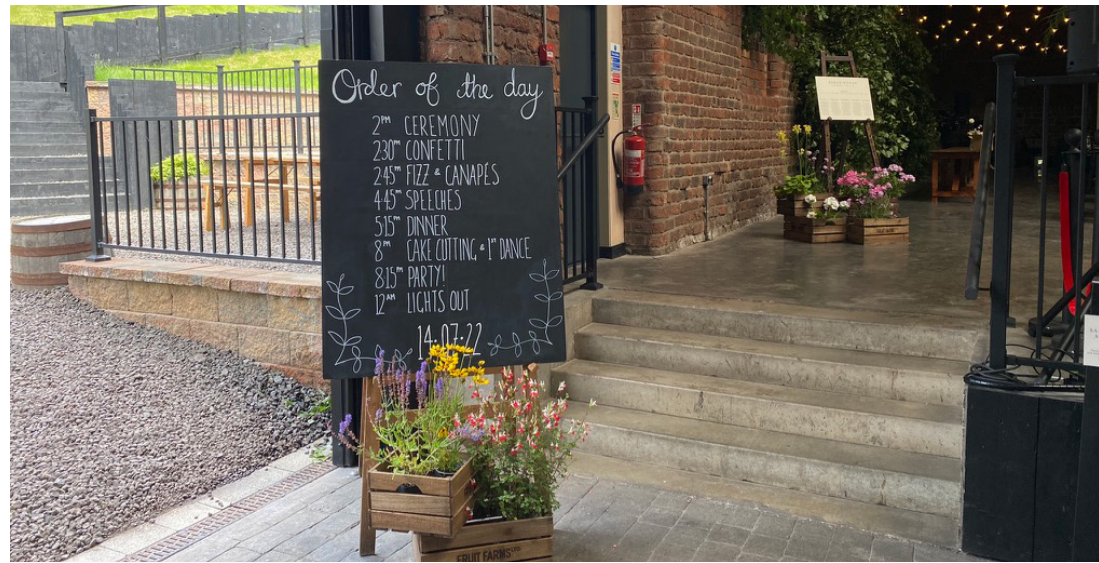 Order of the day
2PM CEREMONY
230PM CONFETTI
245PM FIZZ & CANAPÉS
445PM SPEECHES
515PM DINNER
8PM CAKE CUTTING & 1ST DANCE
815PM PARTY!
12AM LIGHTS OUT
14·07·22
FRUIT FARMS LTD